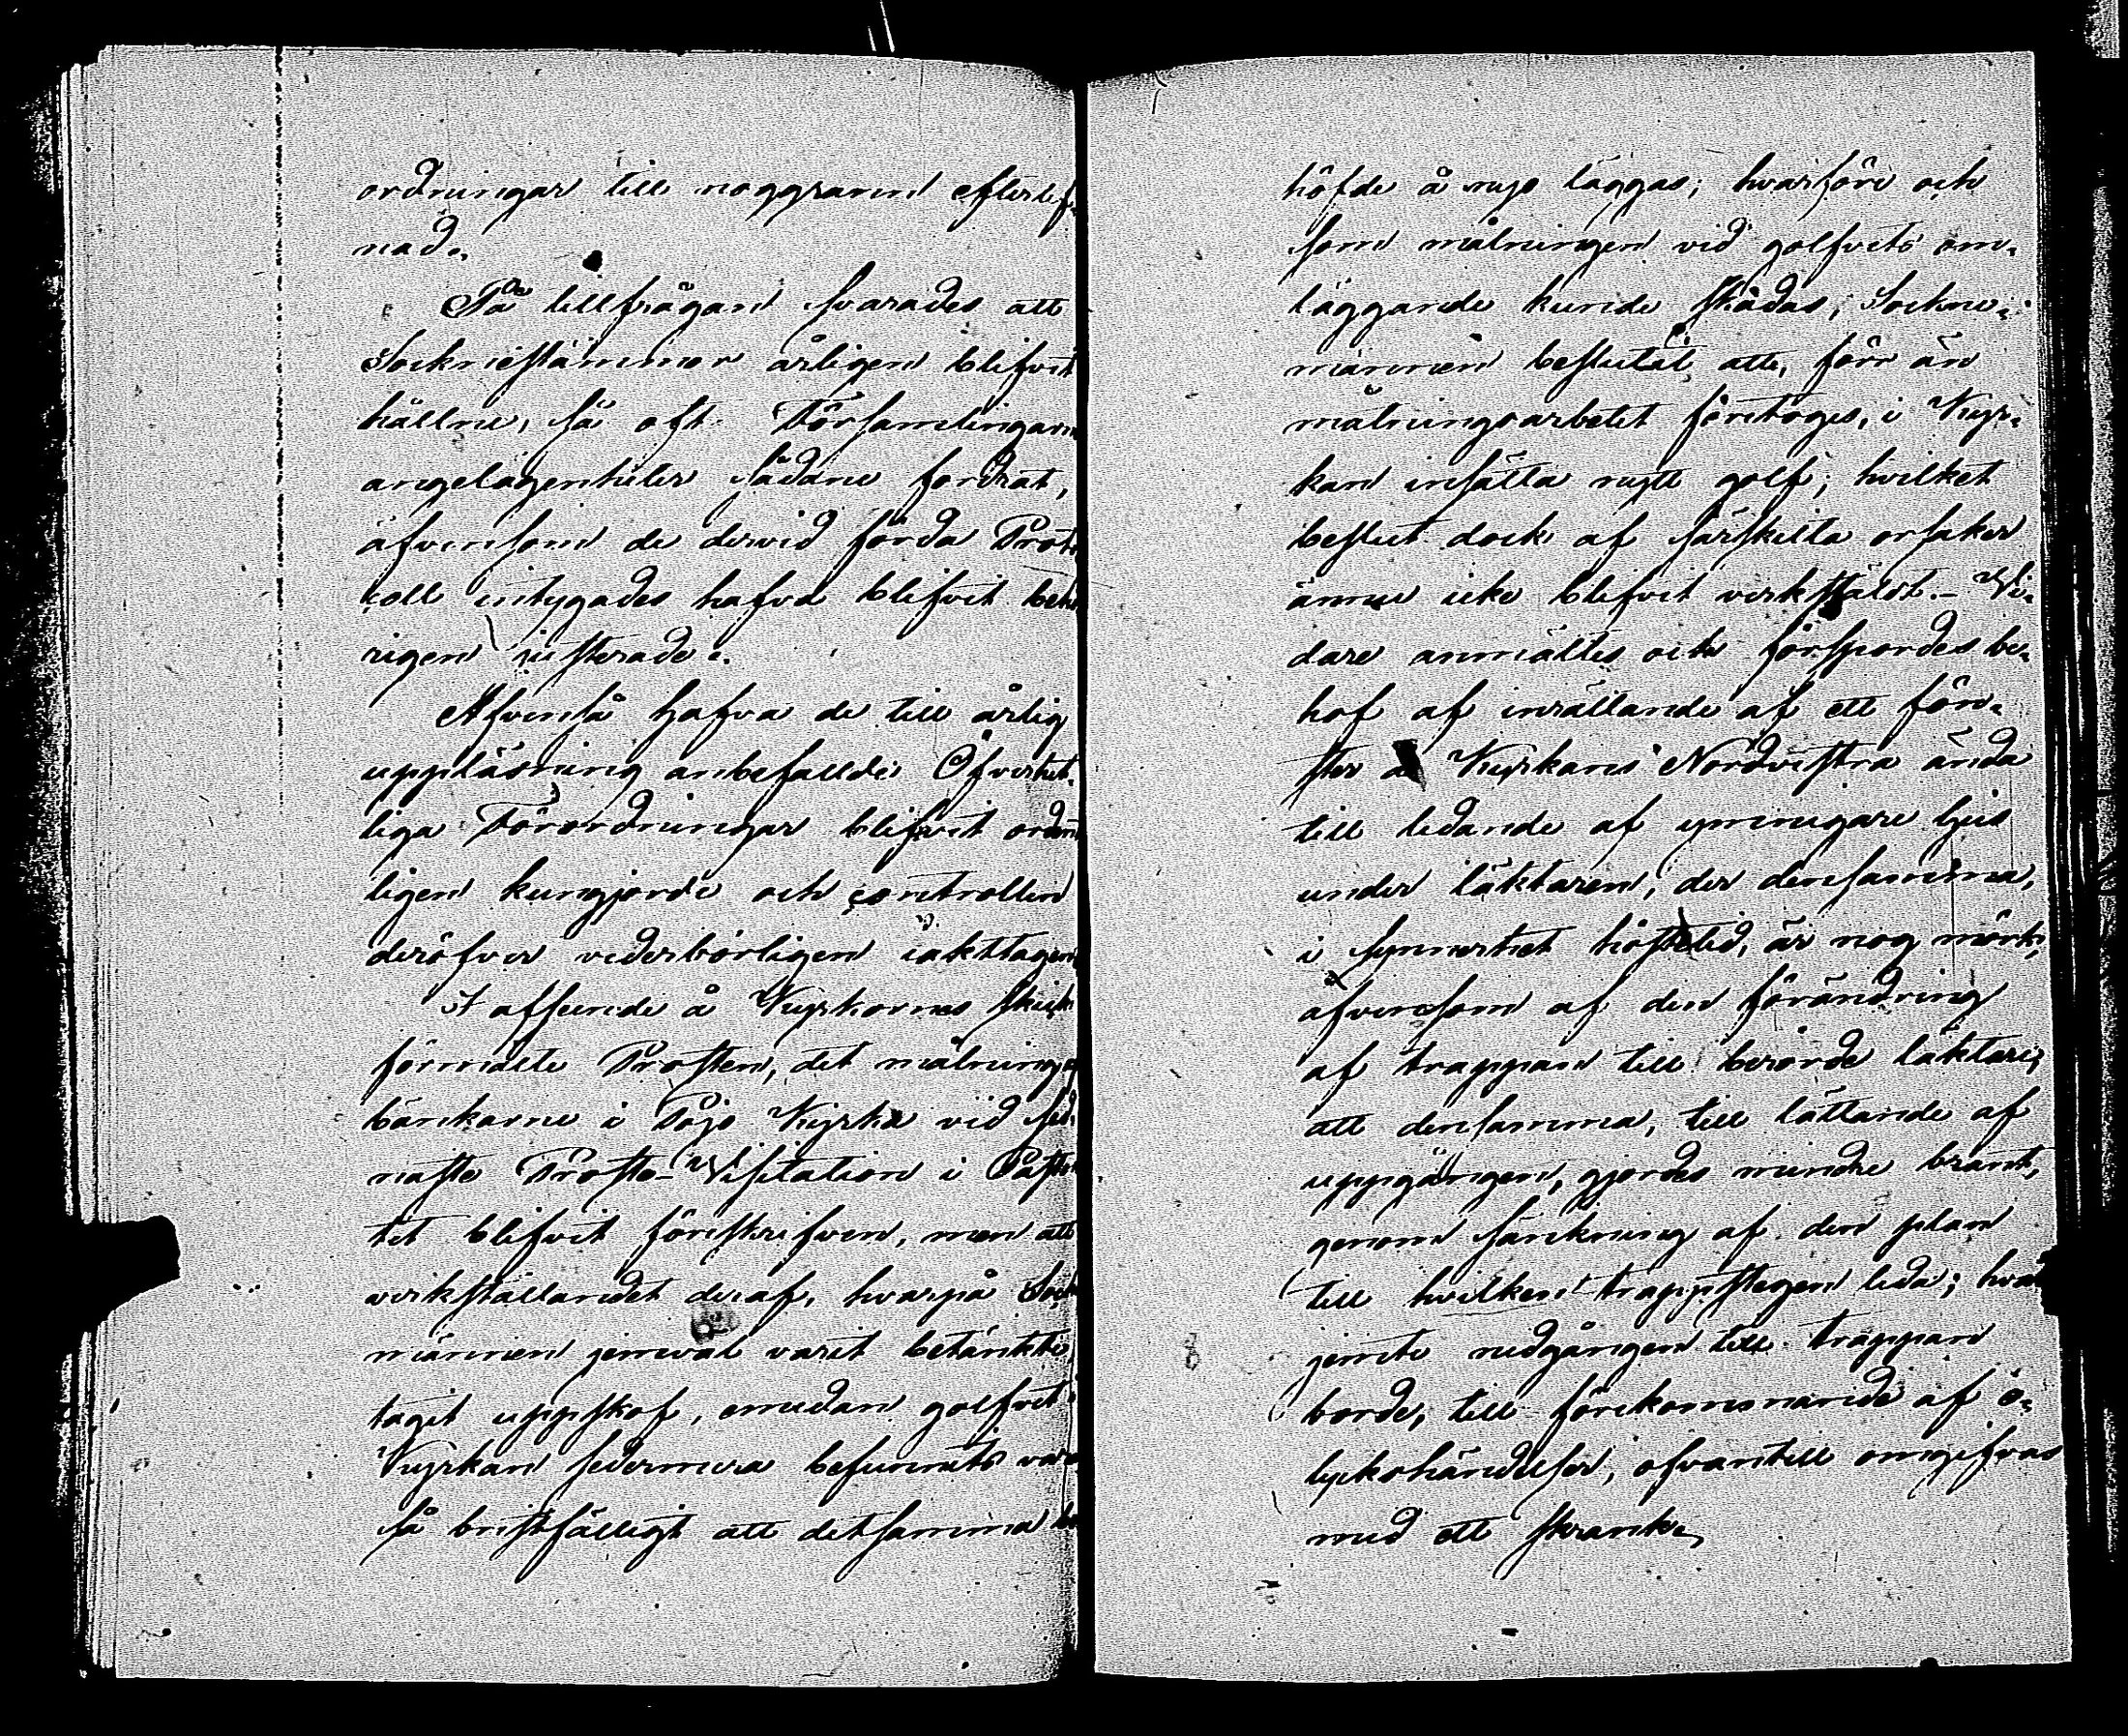 ordningar till noggrann efterlef-
nad.
På tillfrågan svarades att
Socknestämmor årligen blifvit
hållne, så oft Församlingarne
angelägenheter sådane fordrat,
äfvensom de dervid förda Proto
koll intygades hafva blifvit behö
rigen justerade.
Äfvenså hafva de till årlig
uppläsning anbefallde Öfverhet-
liga Förordningar blifvit ordent
ligen kungjorde och controllen
deröfver vederbörligen iakttagen.
I afseende å Kyrkornes skick
förmälte Prosten, det målning
bänkarne i Pojo Kyrka vid sed
naste Prosts-Visitation i Påste
tet blifvit föreskrifven, men att
verkställandet deraf, hvarpå Sock
männen jemväl varit betänkte,
tagit uppskof, emedan golfvet i
Kyrkan sedermera befunnits vara
så bristfälligt att detsamma be
höfde å nyo läggas; hvarföre och
som målningen vid golfvets om-
läggande kunde skadas, Sockne-
männen beslutat att, förr än
målningsarbetet företoges, i Kyr-
kan insätta nytt golf; hvilket
beslut dock af särskilta orsaker
ännu icke blifvit verkstäldt. - Vi-
dare anmältes och förspordes be-
hof af inrättande af ett fön-
ster å Kyrkans Nordvestra ända
till ledande af ymnigare ljus
under läktaren, der densamma,
i synnerhet hösttid, är nog mörk,
äfvensom af den förändring
af trappan till berörde läktare,
att densamma, till lättande af
uppgången, gjordes mindre brant,
genom sänkning af den plan
till hvilken trappstegen leda; hvar
jemte nedgången till trappan
borde, till förekommande af o-
lyckshändelser, ofvantill omgifvas
med ett skrank.